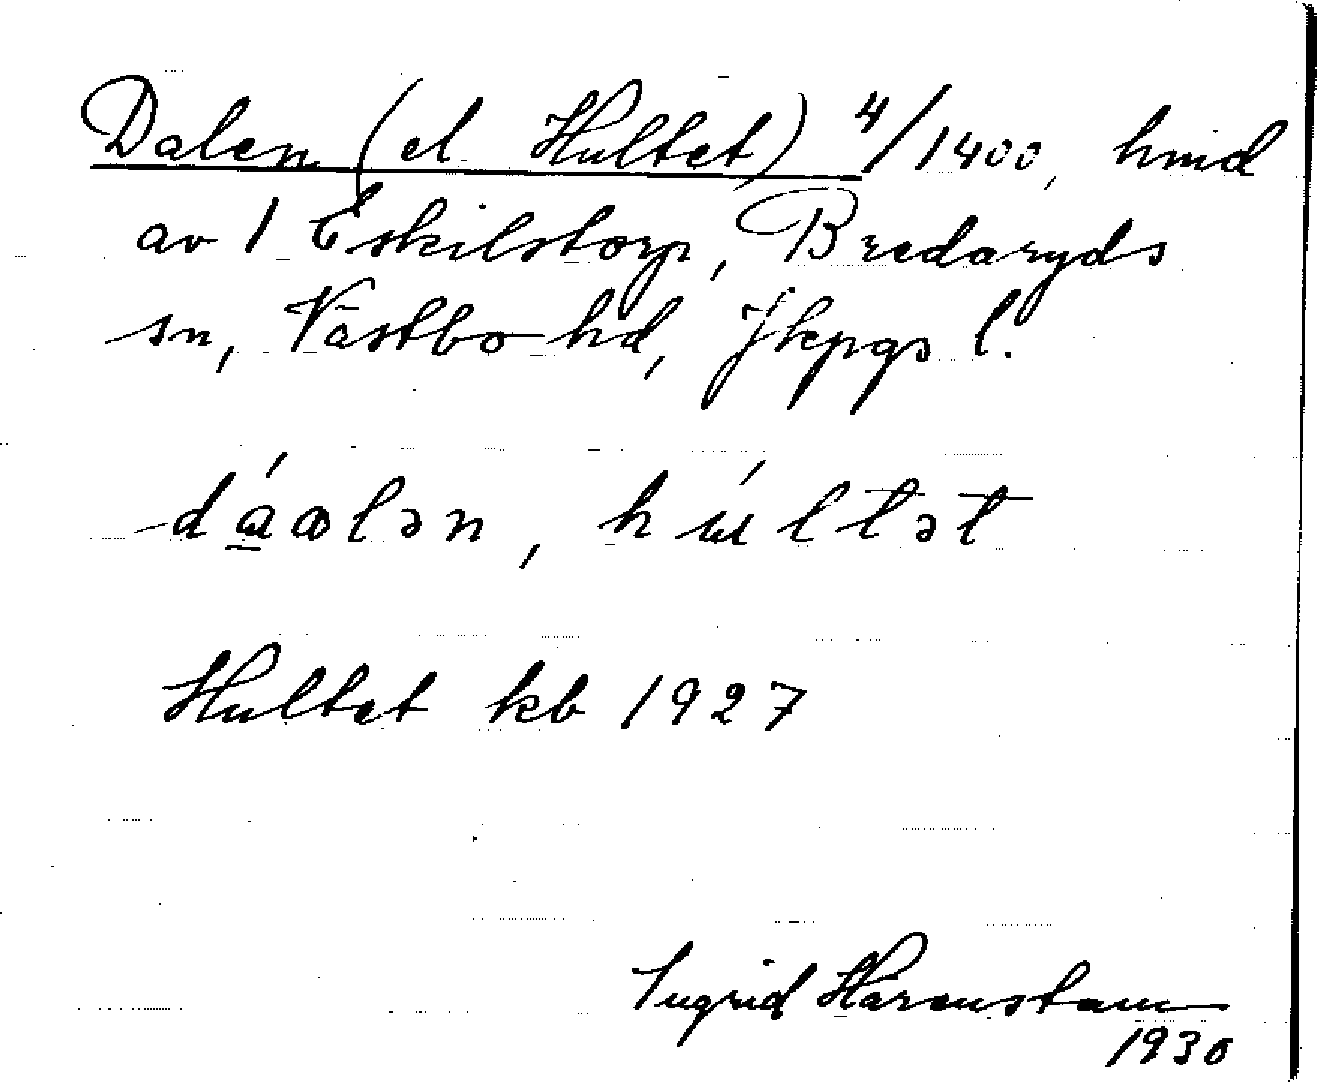 Dalen (el Hultet) 4/1400, hmd
av 1 Eskilstorp, Bredaryds
sn, Västbo hd, Jkpgs l.
dáαlən, húltət
Hultet kb 1927
Ingrid Härenstam
1930